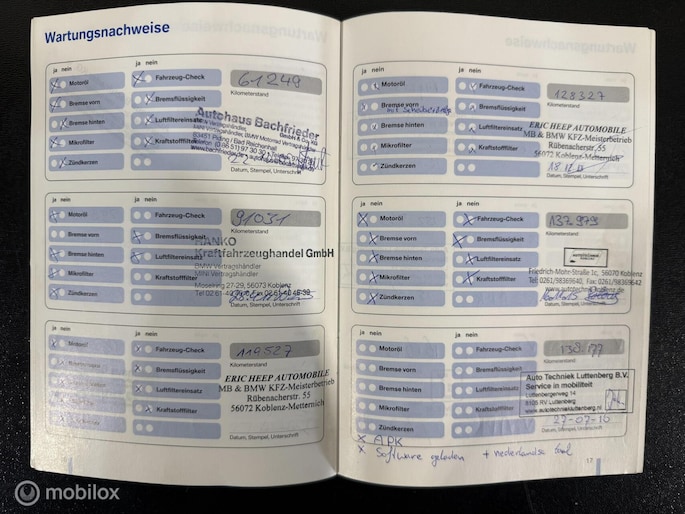 Wartungsnachweise
ja nein ja nein
Motoröl Fahrzeug-Check 61249
Kilometerstand
Bremse vorn Bremsflüssigkeit
Autohaus Bachfrieder
GmbH & Co. KG
Bremse hinten Luftfiltereinsatz
MINI Vertragshändler, BMW Motorrad Vertragshändler
83451 Piding / Bad Reichenhall
Mikrofilter Kraftstofffilter
Zündkerzen
Datum, Stempel, Unterschrift
ja nein ja nein
Motoröl Fahrzeug-Check 91031
Kilometerstand
Bremse vorn Bremsflüssigkeit
HANKO
Kraftfahrzeughandel GmbH
Bremse hinten Luftfiltereinsatz
BMW Vertragshändler
MINI Vertragshändler
Mikrofilter Kraftstofffilter
Moselring 27-29, 56073 Koblenz
Zündkerzen
Datum, Stempel, Unterschrift
ja nein ja nein
Motoröl Fahrzeug-Check 119527
Kilometerstand
Bremsflüssigkeit
Luftfiltereinsatz
ERIC HEEP AUTOMOBILE
MB & BMW KFZ-Meisterbetrieb
Rübenacherstr. 55
56072 Koblenz-Metternich
Kraftstofffilter
Datum, Stempel, Unterschrift
ja nein ja nein
Motoröl Fahrzeug-Check 128327
Kilometerstand
Bremse vorn Bremsflüssigkeit
Bremse hinten Luftfiltereinsatz
ERIC HEEP AUTOMOBILE
MB & BMW KFZ-Meisterbetrieb
Rübenacherstr. 55
56072 Koblenz-Metternich
Mikrofilter Kraftstofffilter
Zündkerzen
Datum, Stempel, Unterschrift
ja nein ja nein
Motoröl Fahrzeug-Check 137979
Kilometerstand
Bremse vorn Bremsflüssigkeit
Bremse hinten Luftfiltereinsatz
Mikrofilter Kraftstofffilter
Friedrich-Mohr-Straße 1c, 56070 Koblenz
Tel: 0261/98369640, Fax: 0261/98369642
Zündkerzen
Datum, Stempel, Unterschrift
ja nein ja nein
Motoröl Fahrzeug-Check
Kilometerstand
Bremse vorn Bremsflüssigkeit
Bremse hinten Luftfiltereinsatz
Auto Techniek Luttenberg B.V.
Service in mobiliteit
Luttenbergerweg 14
8105 RV Luttenberg
www.autotechniekluttenberg.nl
Mikrofilter Kraftstofffilter
Zündkerzen
27-07-16
Datum, Stempel, Unterschrift
x APK
x Software geladen + nederlandse taal
17
mobilox